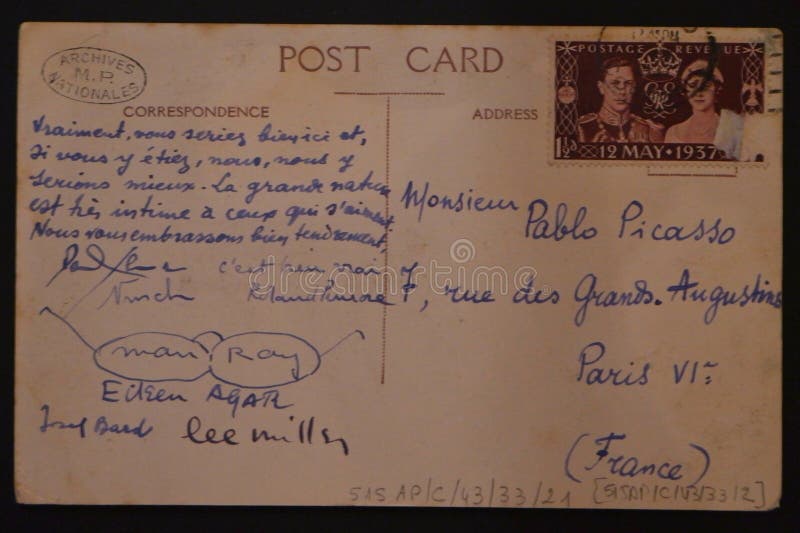 ARCHIVES
M.P.
NATIONALES
POST CARD
CORRESPONDENCE
ADDRESS
POSTAGE REVENUE
1½D 12 MAY · 1937
Vraiment, vous seriez bien ici et,
si vous y étiez, nous, nous y
serions mieux. La grande nature
est très intime à ceux qui s'aiment.
Nous vous embrassons bien tendrement,
c'est bien vrai
Nusch Roland Penrose
man Ray
Eileen AGAR
Josef Bard lee miller
Monsieur Pablo Picasso
7, rue des Grands-Augustins
Paris VIe
(France)
515 AP/C/43/33/21 [515AP/C/43/33/2]
dreamstime